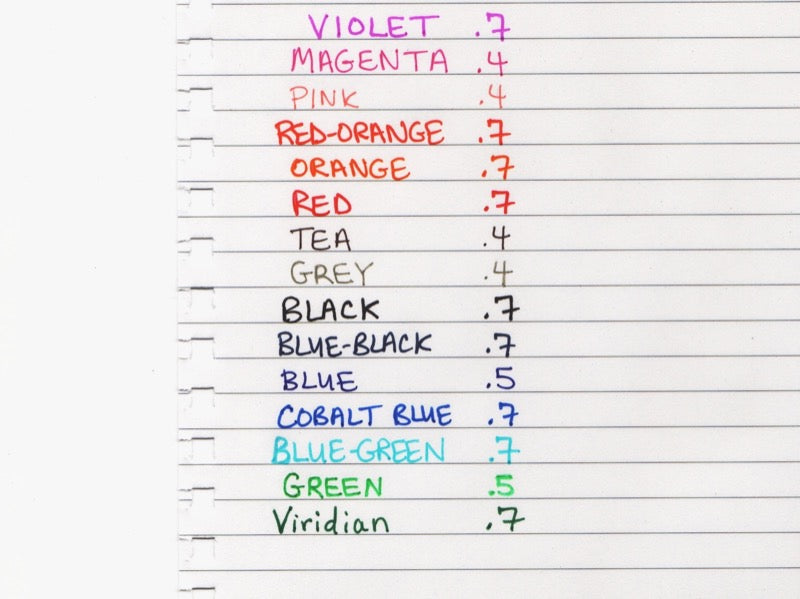 VIOLET .7
MAGENTA .4
PINK .4
RED-ORANGE .7
ORANGE .7
RED .7
TEA .4
GREY .4
BLACK .7
BLUE-BLACK .7
BLUE .5
COBALT BLUE .7
BLUE-GREEN .7
GREEN .5
Viridian .7